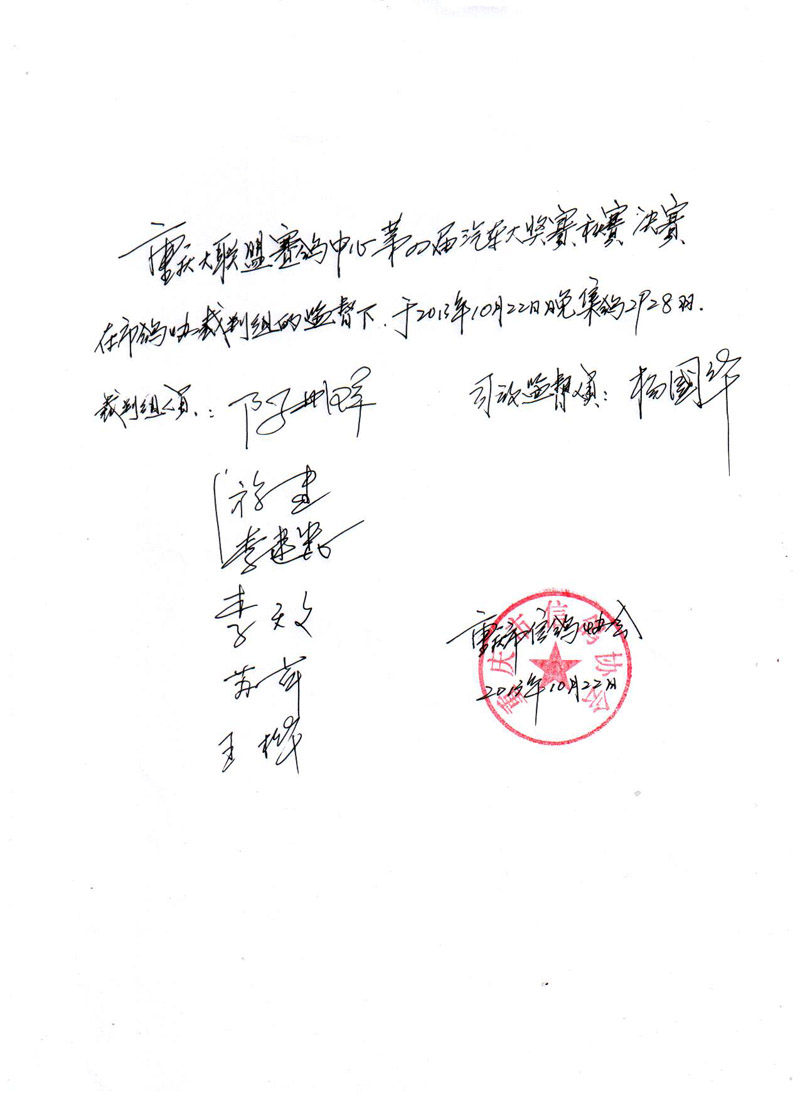 重庆大联盟赛鸽中心第四届汽车大奖赛秋赛决赛
在市鸽协裁判组的监督下.于2013年10月22日晚集鸽2928羽.
裁判组人员:
司放监督员:杨国华
徐建
李建
李文
苏
王桦
重庆市信鸽协会
2013年10月22日
重庆市信鸽协会